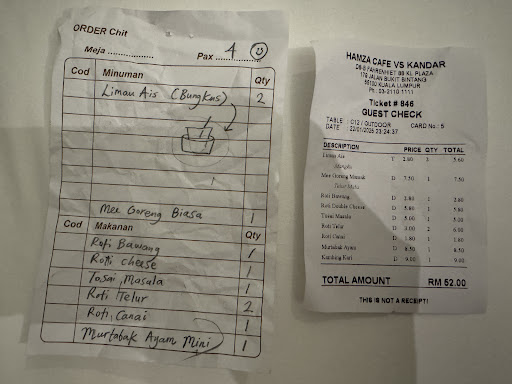 ORDER Chit
Meja ............... Pax ...... 4
Cod Minuman Qty
Limau Ais (Bungkus) 2
Mee Goreng Biasa 1
Cod Makanan Qty
Roti Bawang 1
Rotti cheese 1
Tosai, Masala 1
Roti Telur 2
Roti, Canai 1
Murtabak Ayam Mini 1
HAMZA CAFE VS KANDAR
KL PLAZA
178 JALAN BUKIT BINTANG
KUALA LUMPUR
Ph. 03-2110 1111
Ticket # 846
GUEST CHECK
TABLE : C12 / OUTDOOR CARD No.: 5
DATE : 22/01/2025 23:24:37
DESCRIPTION PRICE QTY TOTAL
Limau Ais T 2.80 2 5.60
Bungkus
Mee Goreng Mamak D 7.50 1 7.50
Roti Bawang D 3.80 1 3.80
Roti Double Cheese D 5.80 1 5.80
Tosai Masala D 5.00 1 5.00
Roti Telur D 3.00 2 6.00
Roti Canai D 1.80 1 1.80
Murtabak Ayam D 8.50 1 8.50
Kambing Kari D 9.00 1 9.00
TOTAL AMOUNT RM 52.00
THIS IS NOT A RECEIPT!